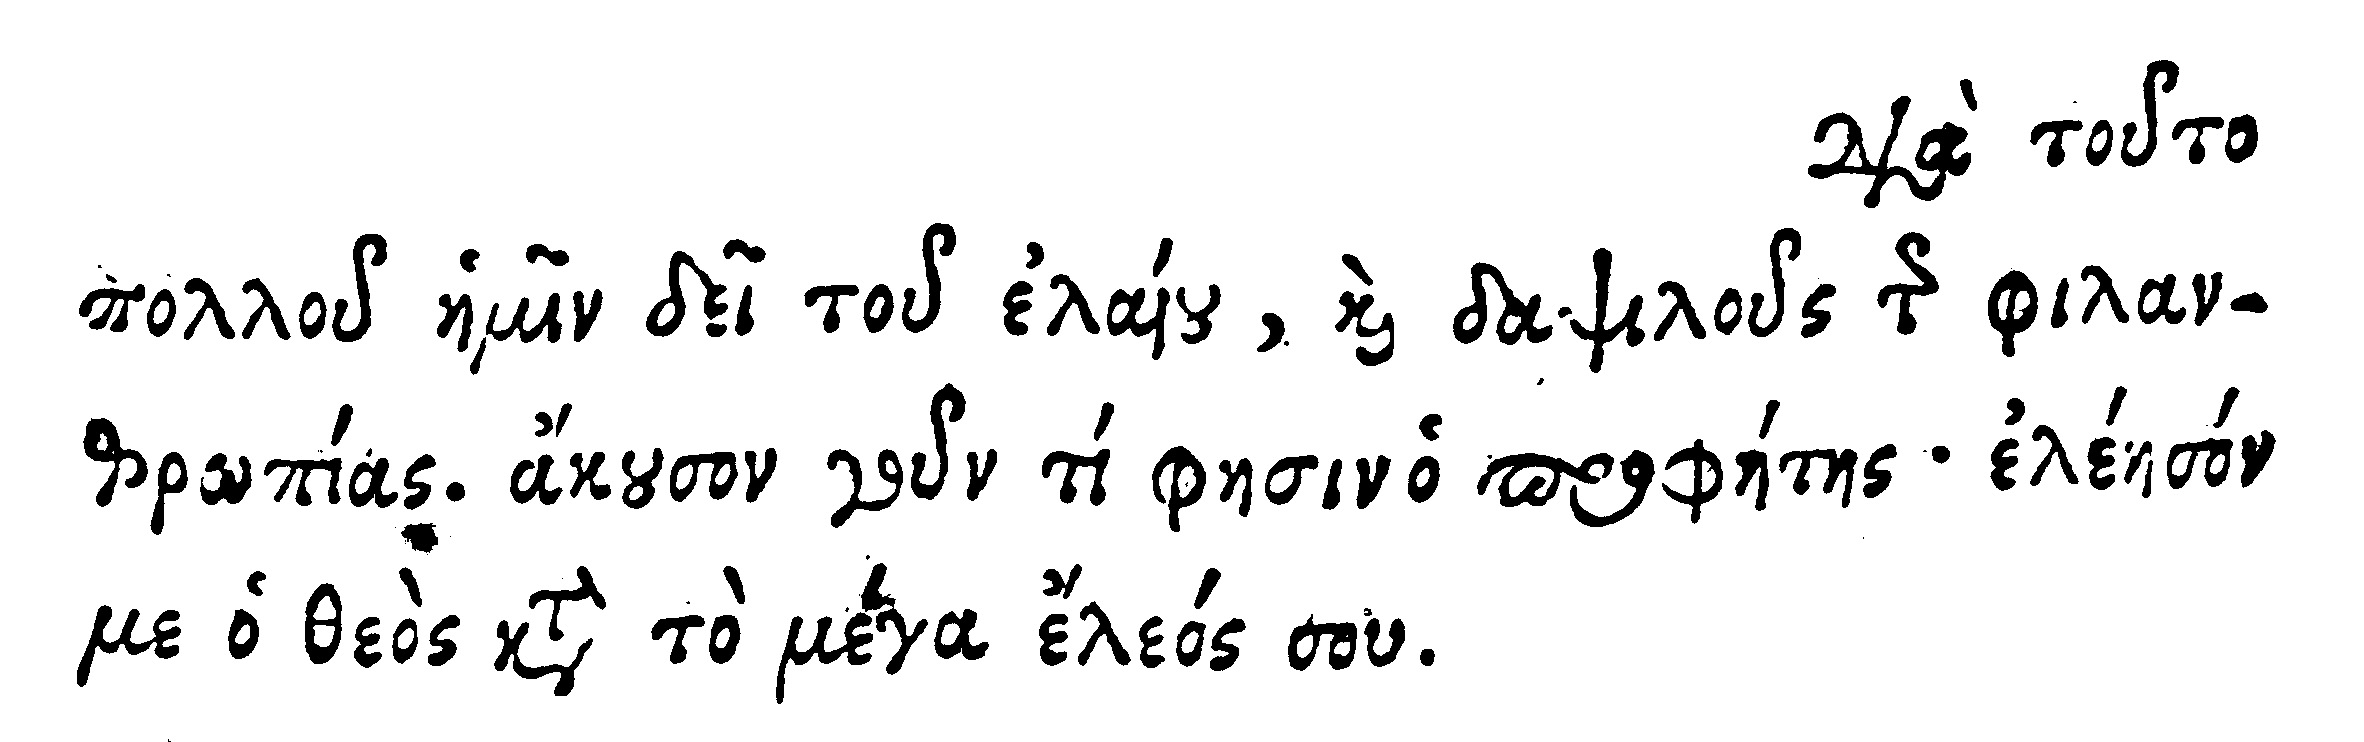 διὰ τοῦτο
πολλοῦ ἡμῖν δεῖ τοῦ ἐλαίου, καὶ δαψιλοῦς τῆς φιλαν-
θρωπίας. ἄκουσον γοῦν τί φησιν ὁ προφήτης· ἐλέησόν
με ὁ θεὸς κατὰ τὸ μέγα ἔλεός σου.